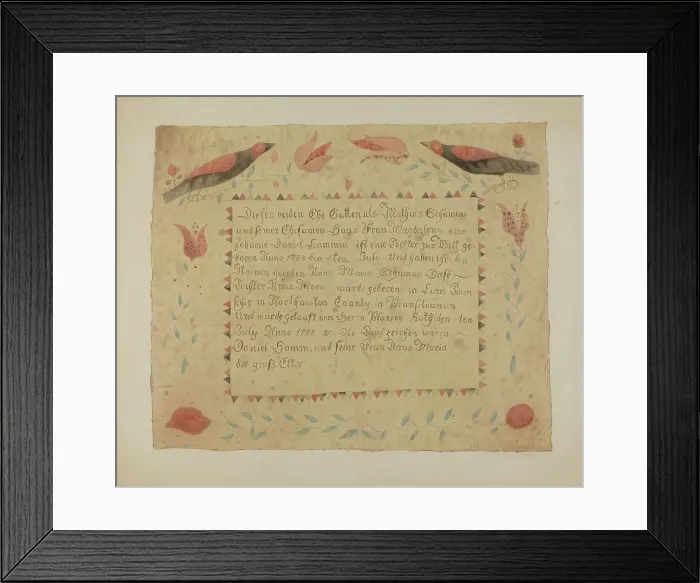 Diesen beiden Ehe Gatten als Mathias Schumens
und seiner Ehrsamen Haus Frau Magdalena eine
geborne Daniel Hammin ist eine Tochter zur Welt ge-
boren Anno 1788 den ten July Und haben ihr den
Namen gegeben Anna Maria Diese
Tochter Anna Maria wurde geboren in Town
schip in Northamton County in Pinnsilvanien
Und wurde getauft von Herrn Pfarrer den ten
July Anno 1788 Die Taufzeichen waren
Daniel Hamm, und seine Frau Anna Maria
die groß